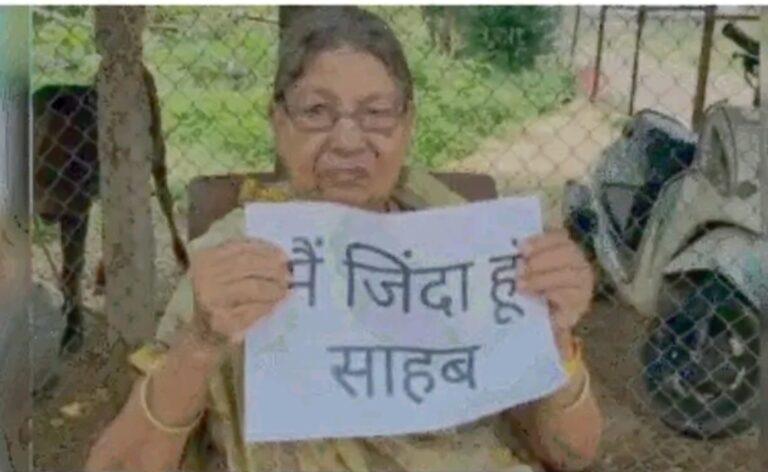 मैं जिंदा हूं
साहब